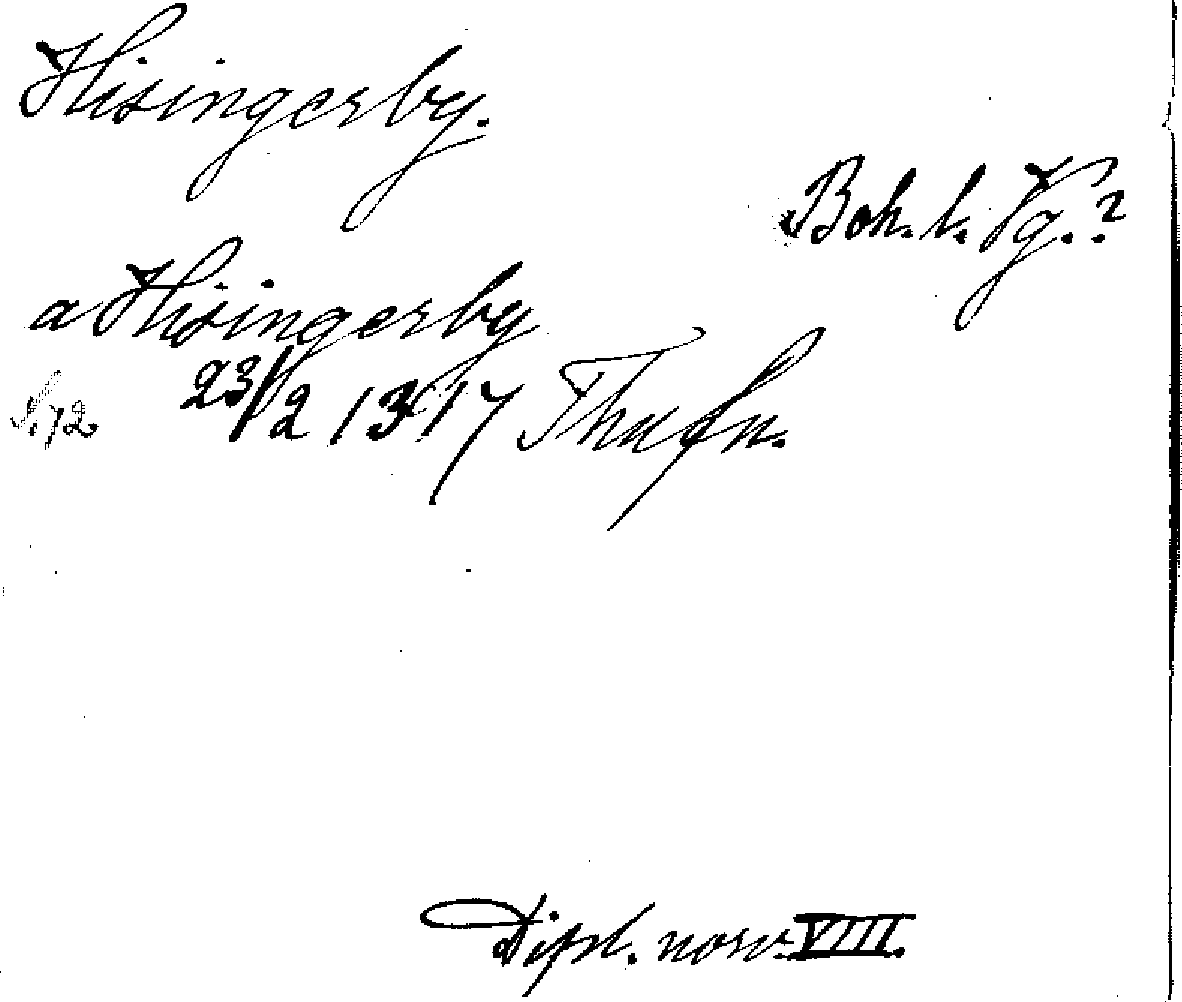 Hisingerby.
Boh. l. Vg.?
a Hisingerby
s. 72 23/2 1347
Dipl. norv. VIII.